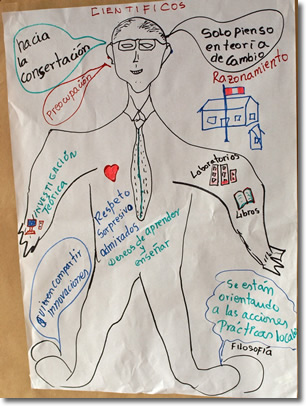 CIENTIFICOS
hacia
la
consertación
Preocupación
Solo pienso
en teoría
de cambio
Razonamiento
INVESTIGACIÓN
TEÓRICA
Laboratorios
Libros
Respeto
sorpresivo
admirados
Deseos de aprender
y
enseñar
Quieren compartir
Innovaciones
Se están
orientando
a las acciones
Prácticas locales
FILOSOFÍA